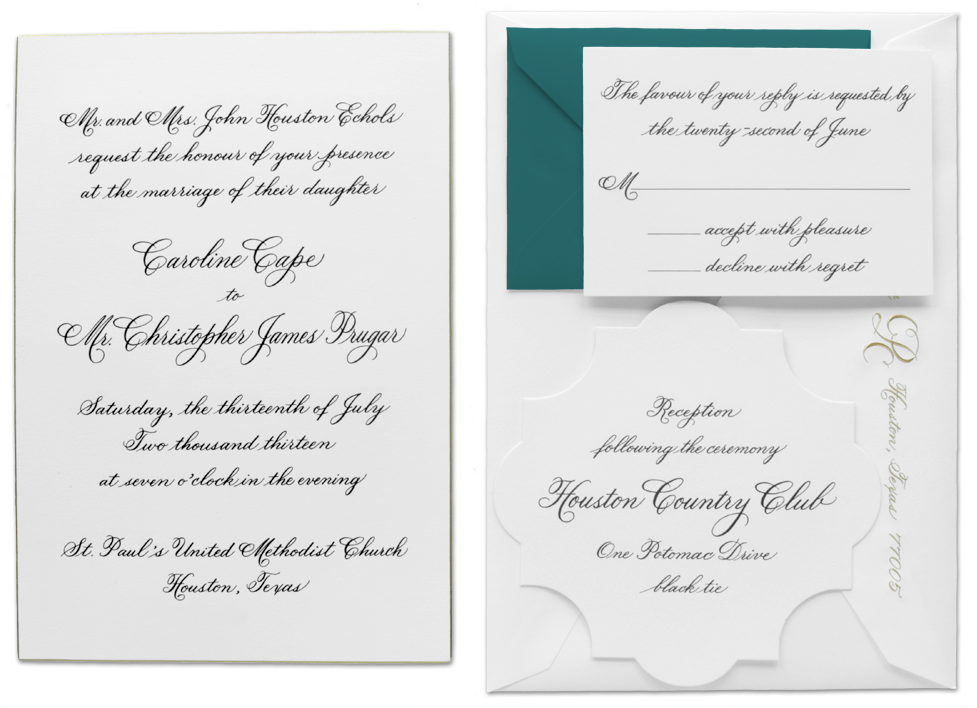 Mr. and Mrs. John Houston Echols
request the honour of your presence
at the marriage of their daughter
Caroline Cape
to
Mr. Christopher James Prugar
Saturday, the thirteenth of July
Two thousand thirteen
at seven o'clock in the evening
St. Paul's United Methodist Church
Houston, Texas
The favour of your reply is requested by
the twenty-second of June
M
accept with pleasure
decline with regret
Reception
following the ceremony
Houston Country Club
One Potomac Drive
black tie
Houston, Texas 77005